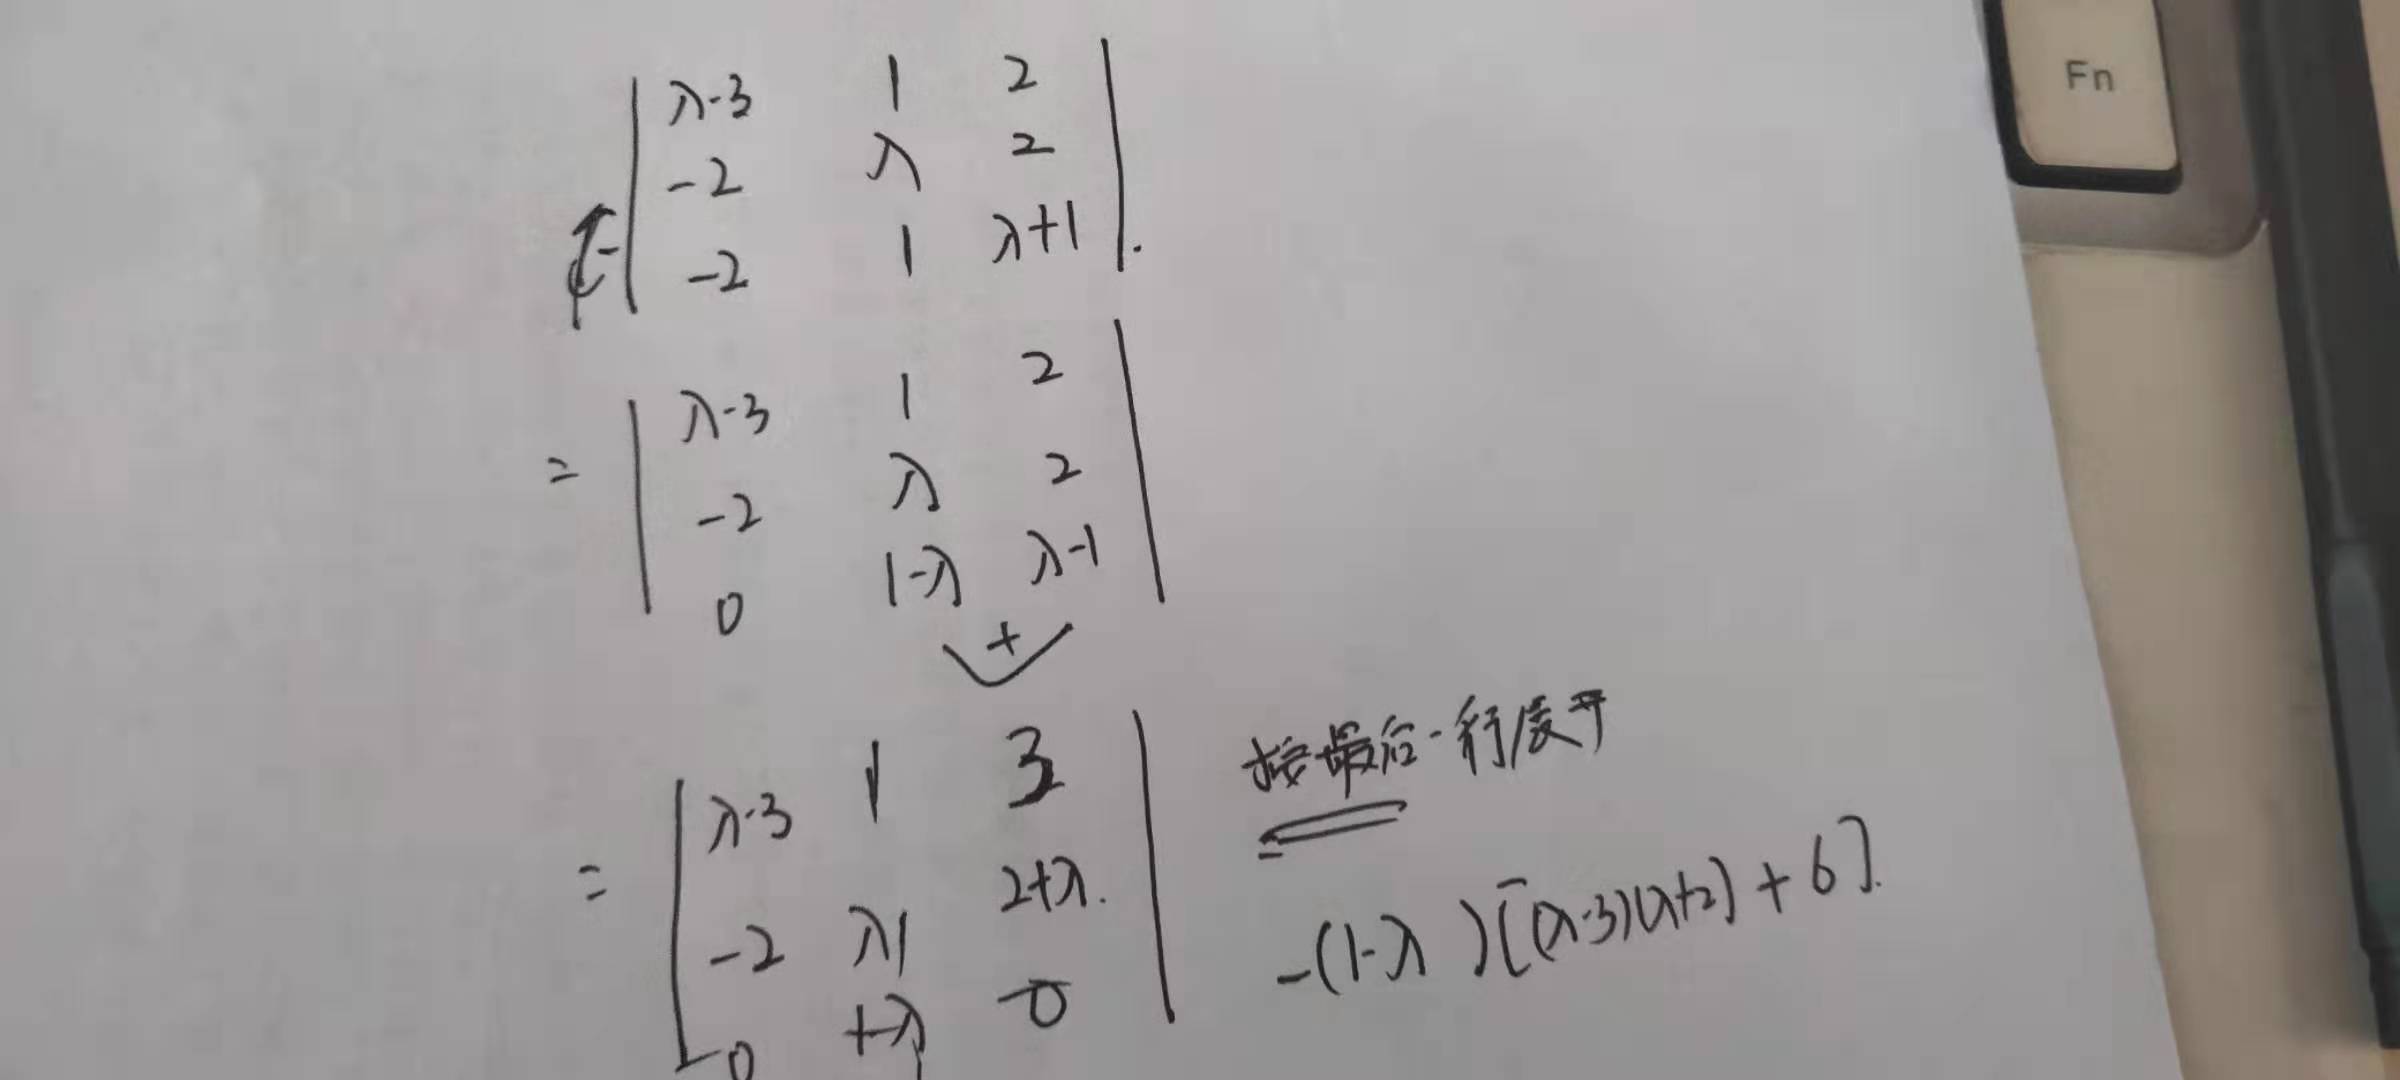 | λ-3 1 2 |
| -2 λ 2 |
| -2 1 λ+1 | .
= | λ-3 1 2 |
| -2 λ 2 |
| 0 1-λ λ-1 |
+
= | λ-3 1 3 |
| -2 λ 2+λ. |
| 0 1-λ 0 |
按最后一行展开
=
-(1-λ)[(λ-3)(λ+2)+6].
Fn